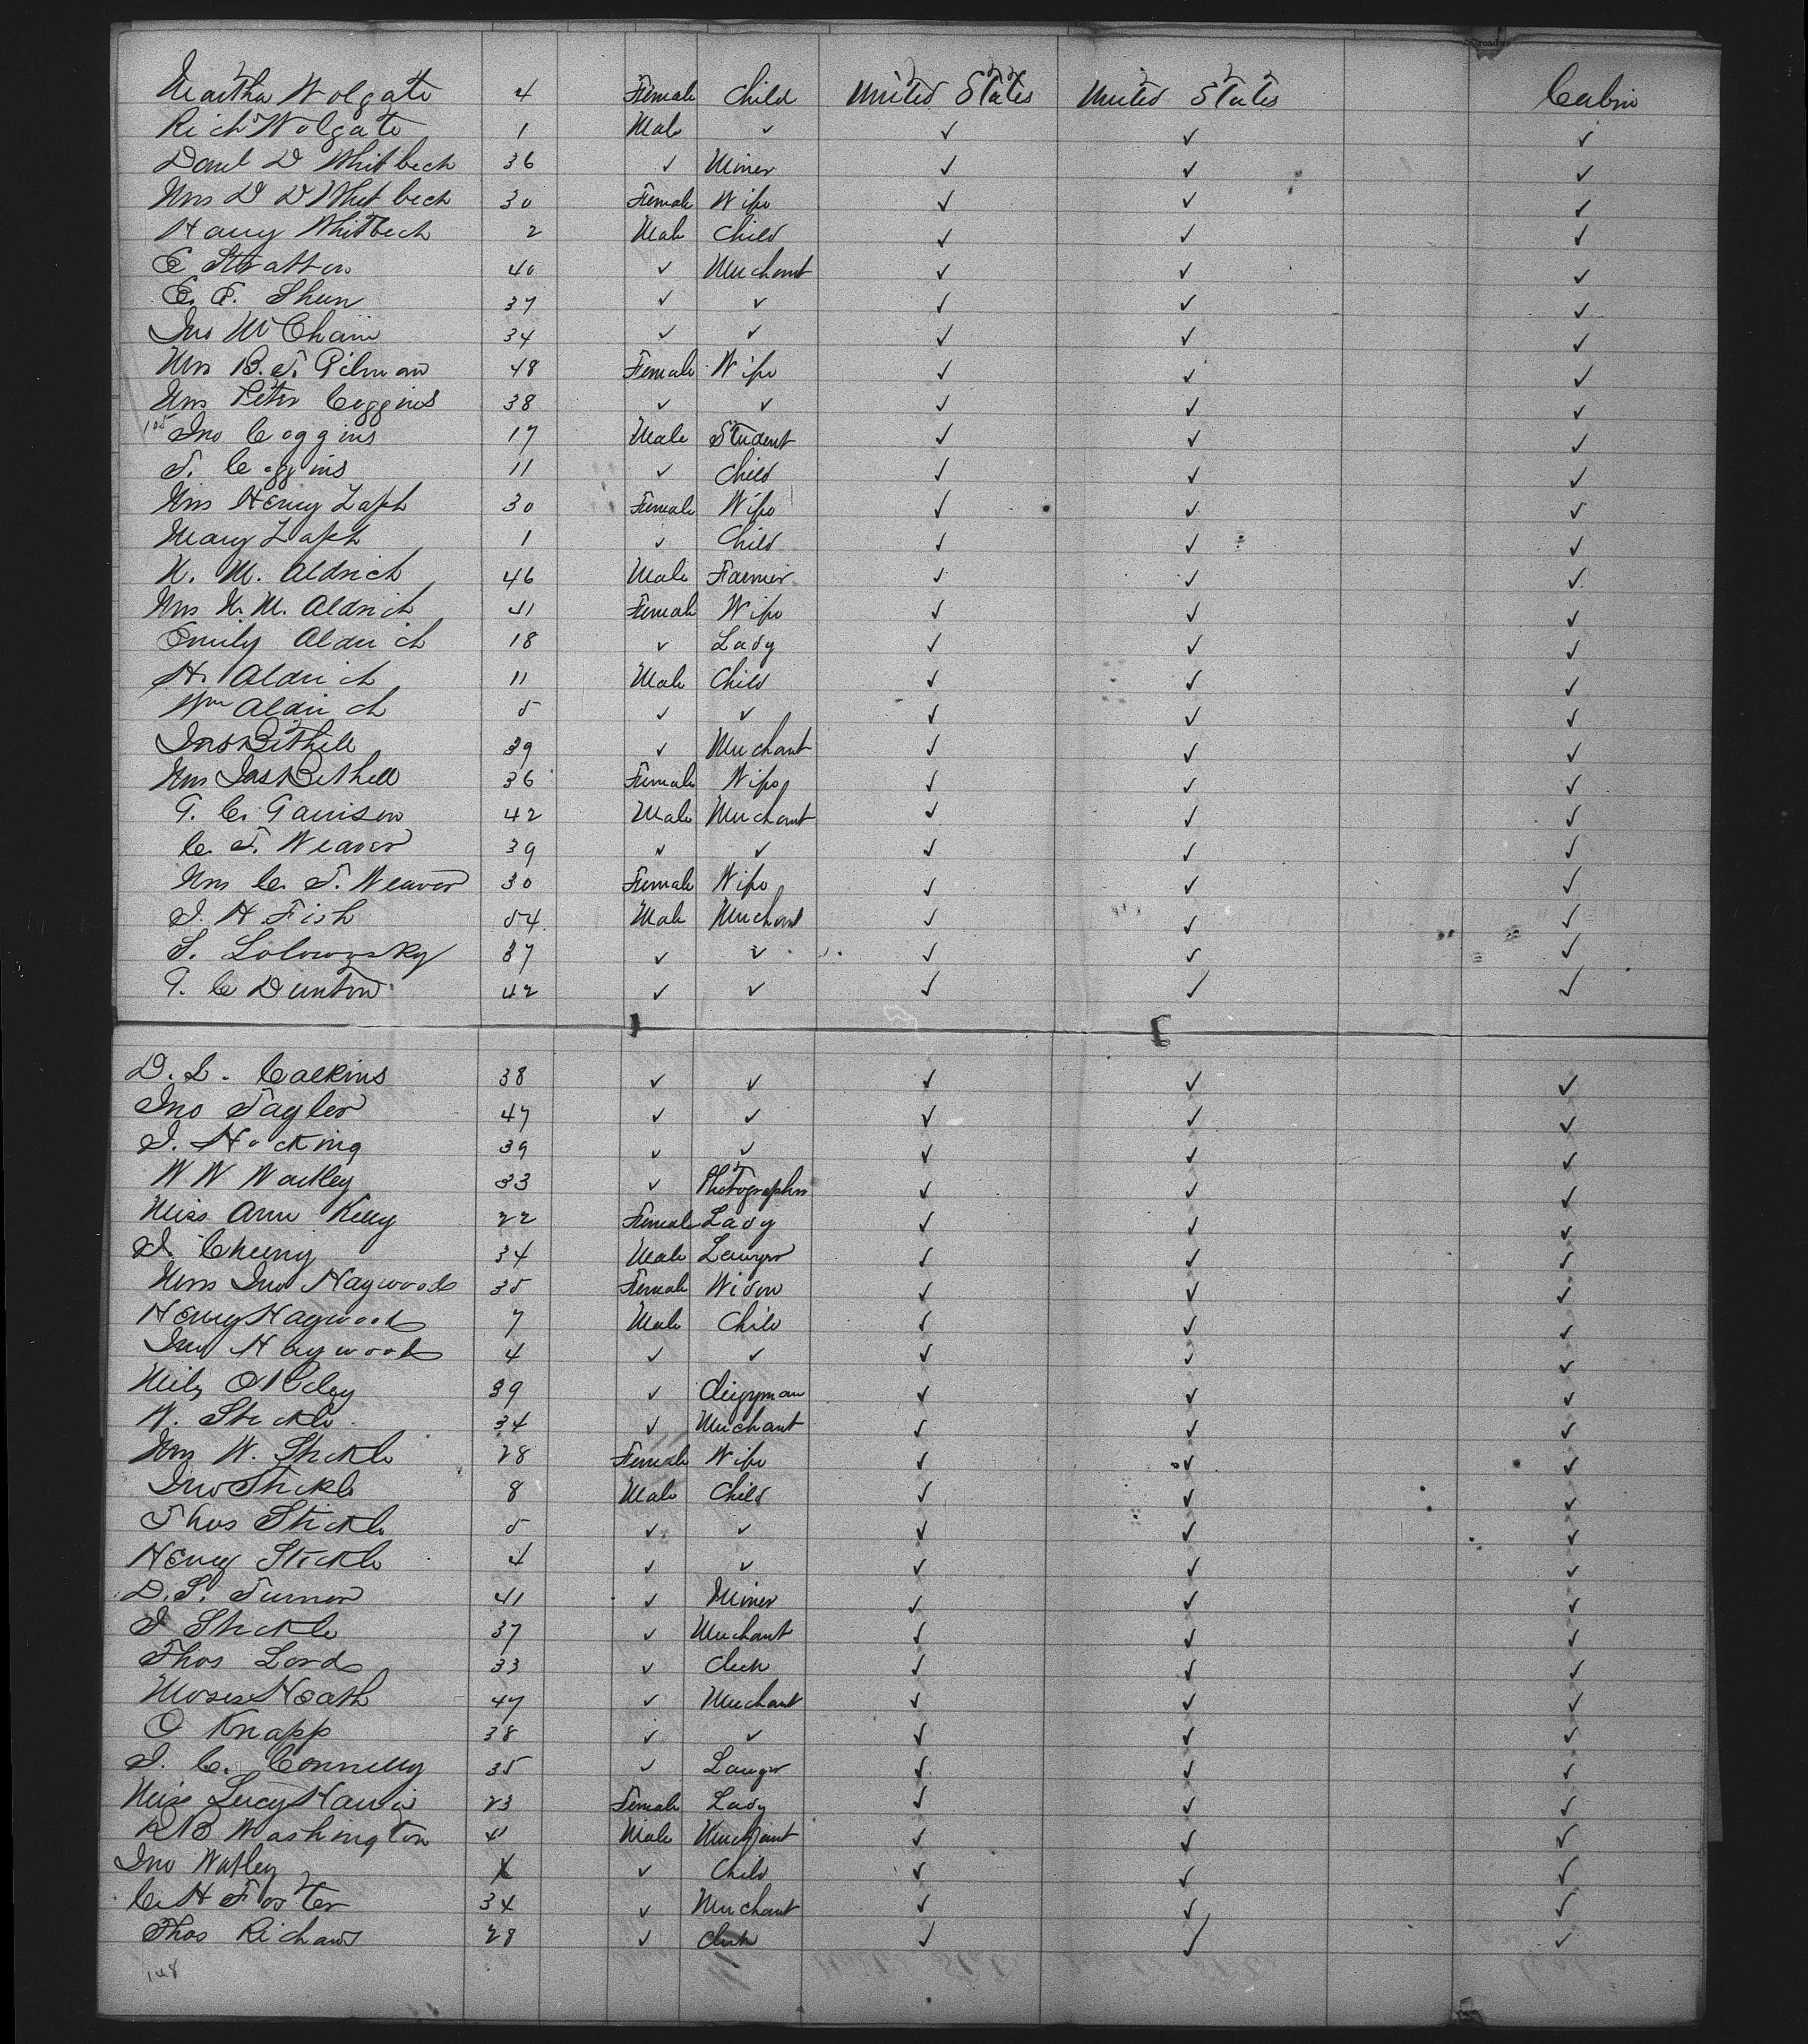 Martha Wolgate 4 Female Child United States United States Cabin
Richd Wolgate 1 Male ✓ ✓ ✓ ✓
Danl D Whitbeck 36 ✓ Miner ✓ ✓ ✓
Mrs D D Whitbeck 30 Female Wife ✓ ✓ ✓
Harry Whitbeck 2 Male Child ✓ ✓ ✓
E Stratton 40 ✓ Merchant ✓ ✓ ✓
37 ✓ ✓ ✓ ✓ ✓
Jno McChain 34 ✓ ✓ ✓ ✓ ✓
Mrs B. F. Gilman 48 Female Wife ✓ ✓ ✓
Mrs Peter Coggins 38 ✓ ✓ ✓ ✓ ✓
105 Jno Coggins 17 Male Student ✓ ✓ ✓
T. Coggins 11 ✓ Child ✓ ✓ ✓
Mrs Henry Laph 30 Female Wife ✓ ✓ ✓
Mary Laph 1 ✓ Child ✓ ✓ ✓
N. M. Aldrich 46 Male Farmer ✓ ✓ ✓
Mrs N. M. Aldrich 41 Female Wife ✓ ✓ ✓
Emily Aldrich 18 ✓ Lady ✓ ✓ ✓
H. Aldrich 11 Male Child ✓ ✓ ✓
Wm Aldrich 5 ✓ ✓ ✓ ✓ ✓
Jas Bethell 39 ✓ Merchant ✓ ✓ ✓
Mrs Jas Bethell 36 Female Wife ✓ ✓ ✓
G. C. Garrison 42 Male Merchant ✓ ✓ ✓
C. T. Weaver 39 ✓ ✓ ✓ ✓ ✓
Mrs C. T. Weaver 30 Female Wife ✓ ✓ ✓
J. H. Fish 54 Male Merchant ✓ ✓ ✓
S. Solowosky 37 ✓ ✓ ✓ ✓ ✓
G. C Dunton 42 ✓ ✓ ✓ ✓ ✓
D. L. Calkins 38 ✓ ✓ ✓ ✓ ✓
Jno Tayler 47 ✓ ✓ ✓ ✓ ✓
J. Hocking 39 ✓ ✓ ✓ ✓ ✓
W W Wackley 33 ✓ Photographer ✓ ✓ ✓
Miss Ann Kelly 22 Female Lady ✓ ✓ ✓
J. 34 Male Lawyer ✓ ✓ ✓
Mrs Jno Haywood 35 Female Widow ✓ ✓ ✓
Henry Haywood 7 Male Child ✓ ✓ ✓
Jno Haywood 4 ✓ ✓ ✓ ✓ ✓
39 ✓ Clergyman ✓ ✓ ✓
W. Stickle 34 ✓ Merchant ✓ ✓ ✓
Mrs W. Stickle 28 Female Wife ✓ ✓ ✓
Jno Stickle 8 Male Child ✓ ✓ ✓
Thos Stickle 5 ✓ ✓ ✓ ✓ ✓
Henry Stickle 4 ✓ ✓ ✓ ✓ ✓
D. S. Turner 41 ✓ Miner ✓ ✓ ✓
J Stickle 37 ✓ Merchant ✓ ✓ ✓
Thos Lord 33 ✓ Clerk ✓ ✓ ✓
Moses Heath 47 ✓ Merchant ✓ ✓ ✓
O Knapp 38 ✓ ✓ ✓ ✓ ✓
J. C. Connelly 35 ✓ Lawyer ✓ ✓ ✓
Miss Lucy Harris 23 Female Lady ✓ ✓ ✓
R B Washington Male Merchant ✓ ✓ ✓
Jno Watley ✓ Child ✓ ✓ ✓
C. H Foster 34 ✓ Merchant ✓ ✓ ✓
Thos Richard 28 ✓ Clerk ✓ ✓ ✓
148